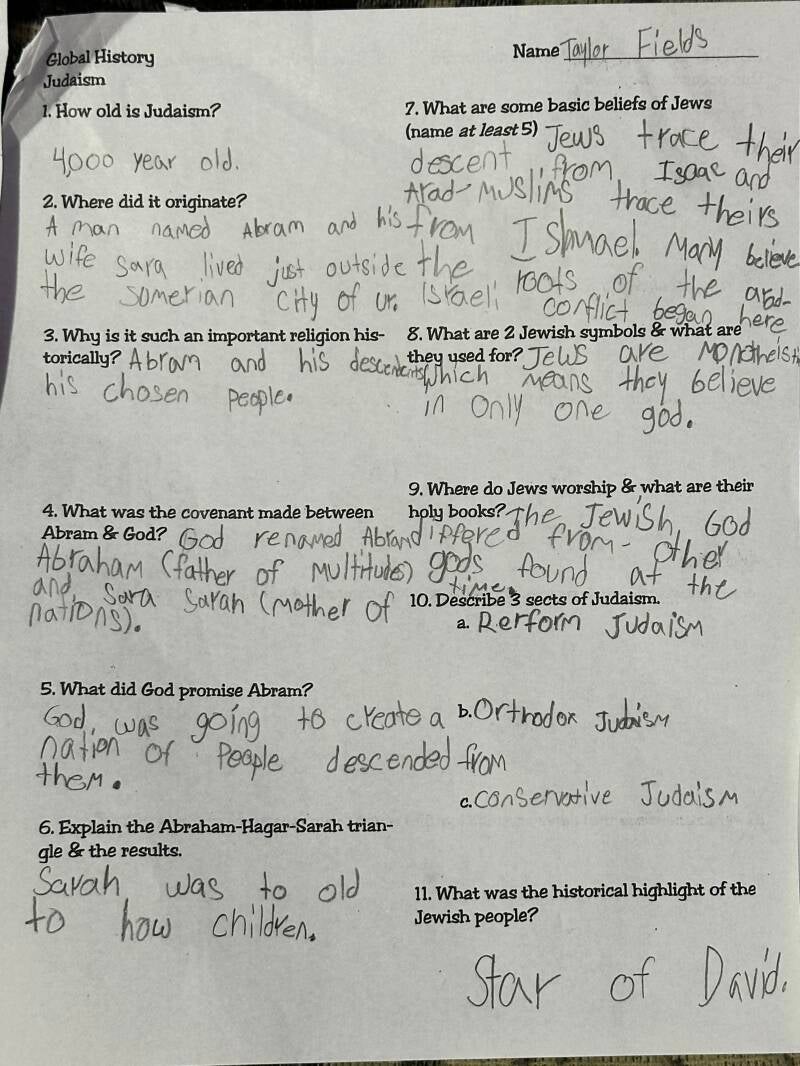 Global History
Judaism
Name Taylor Fields
1. How old is Judaism?
4,000 year old.
2. Where did it originate?
A man named Abram and his
wife Sara lived just outside
the Somerian City of ur.
3. Why is it such an important religion his-
torically? Abram and his descendents
his chosen people.
4. What was the covenant made between
Abram & God? God renamed Abram
Abraham (father of multitude)
and Sara Sarah (mother of
nations).
5. What did God promise Abram?
God was going to create a
nation of people descended from
them.
6. Explain the Abraham-Hagar-Sarah trian-
gle & the results.
Sarah was to old
to how children.
7. What are some basic beliefs of Jews
(name at least 5) Jews trace their
descent from Isaac and
Arad-Muslims trace theirs
from Ishmael. Many believe
the roots of the arad-
Israeli conflict began here
8. What are 2 Jewish symbols & what are
they used for? Jews are monotheistic
which means they believe
in only one god.
9. Where do Jews worship & what are their
holy books? The Jewish God
differed from other
gods found at the
time.
10. Describe 3 sects of Judaism.
a. Rerform Judaism
b. Orthodox Judaism
c. Conservative Judaism
11. What was the historical highlight of the
Jewish people?
Star of David.